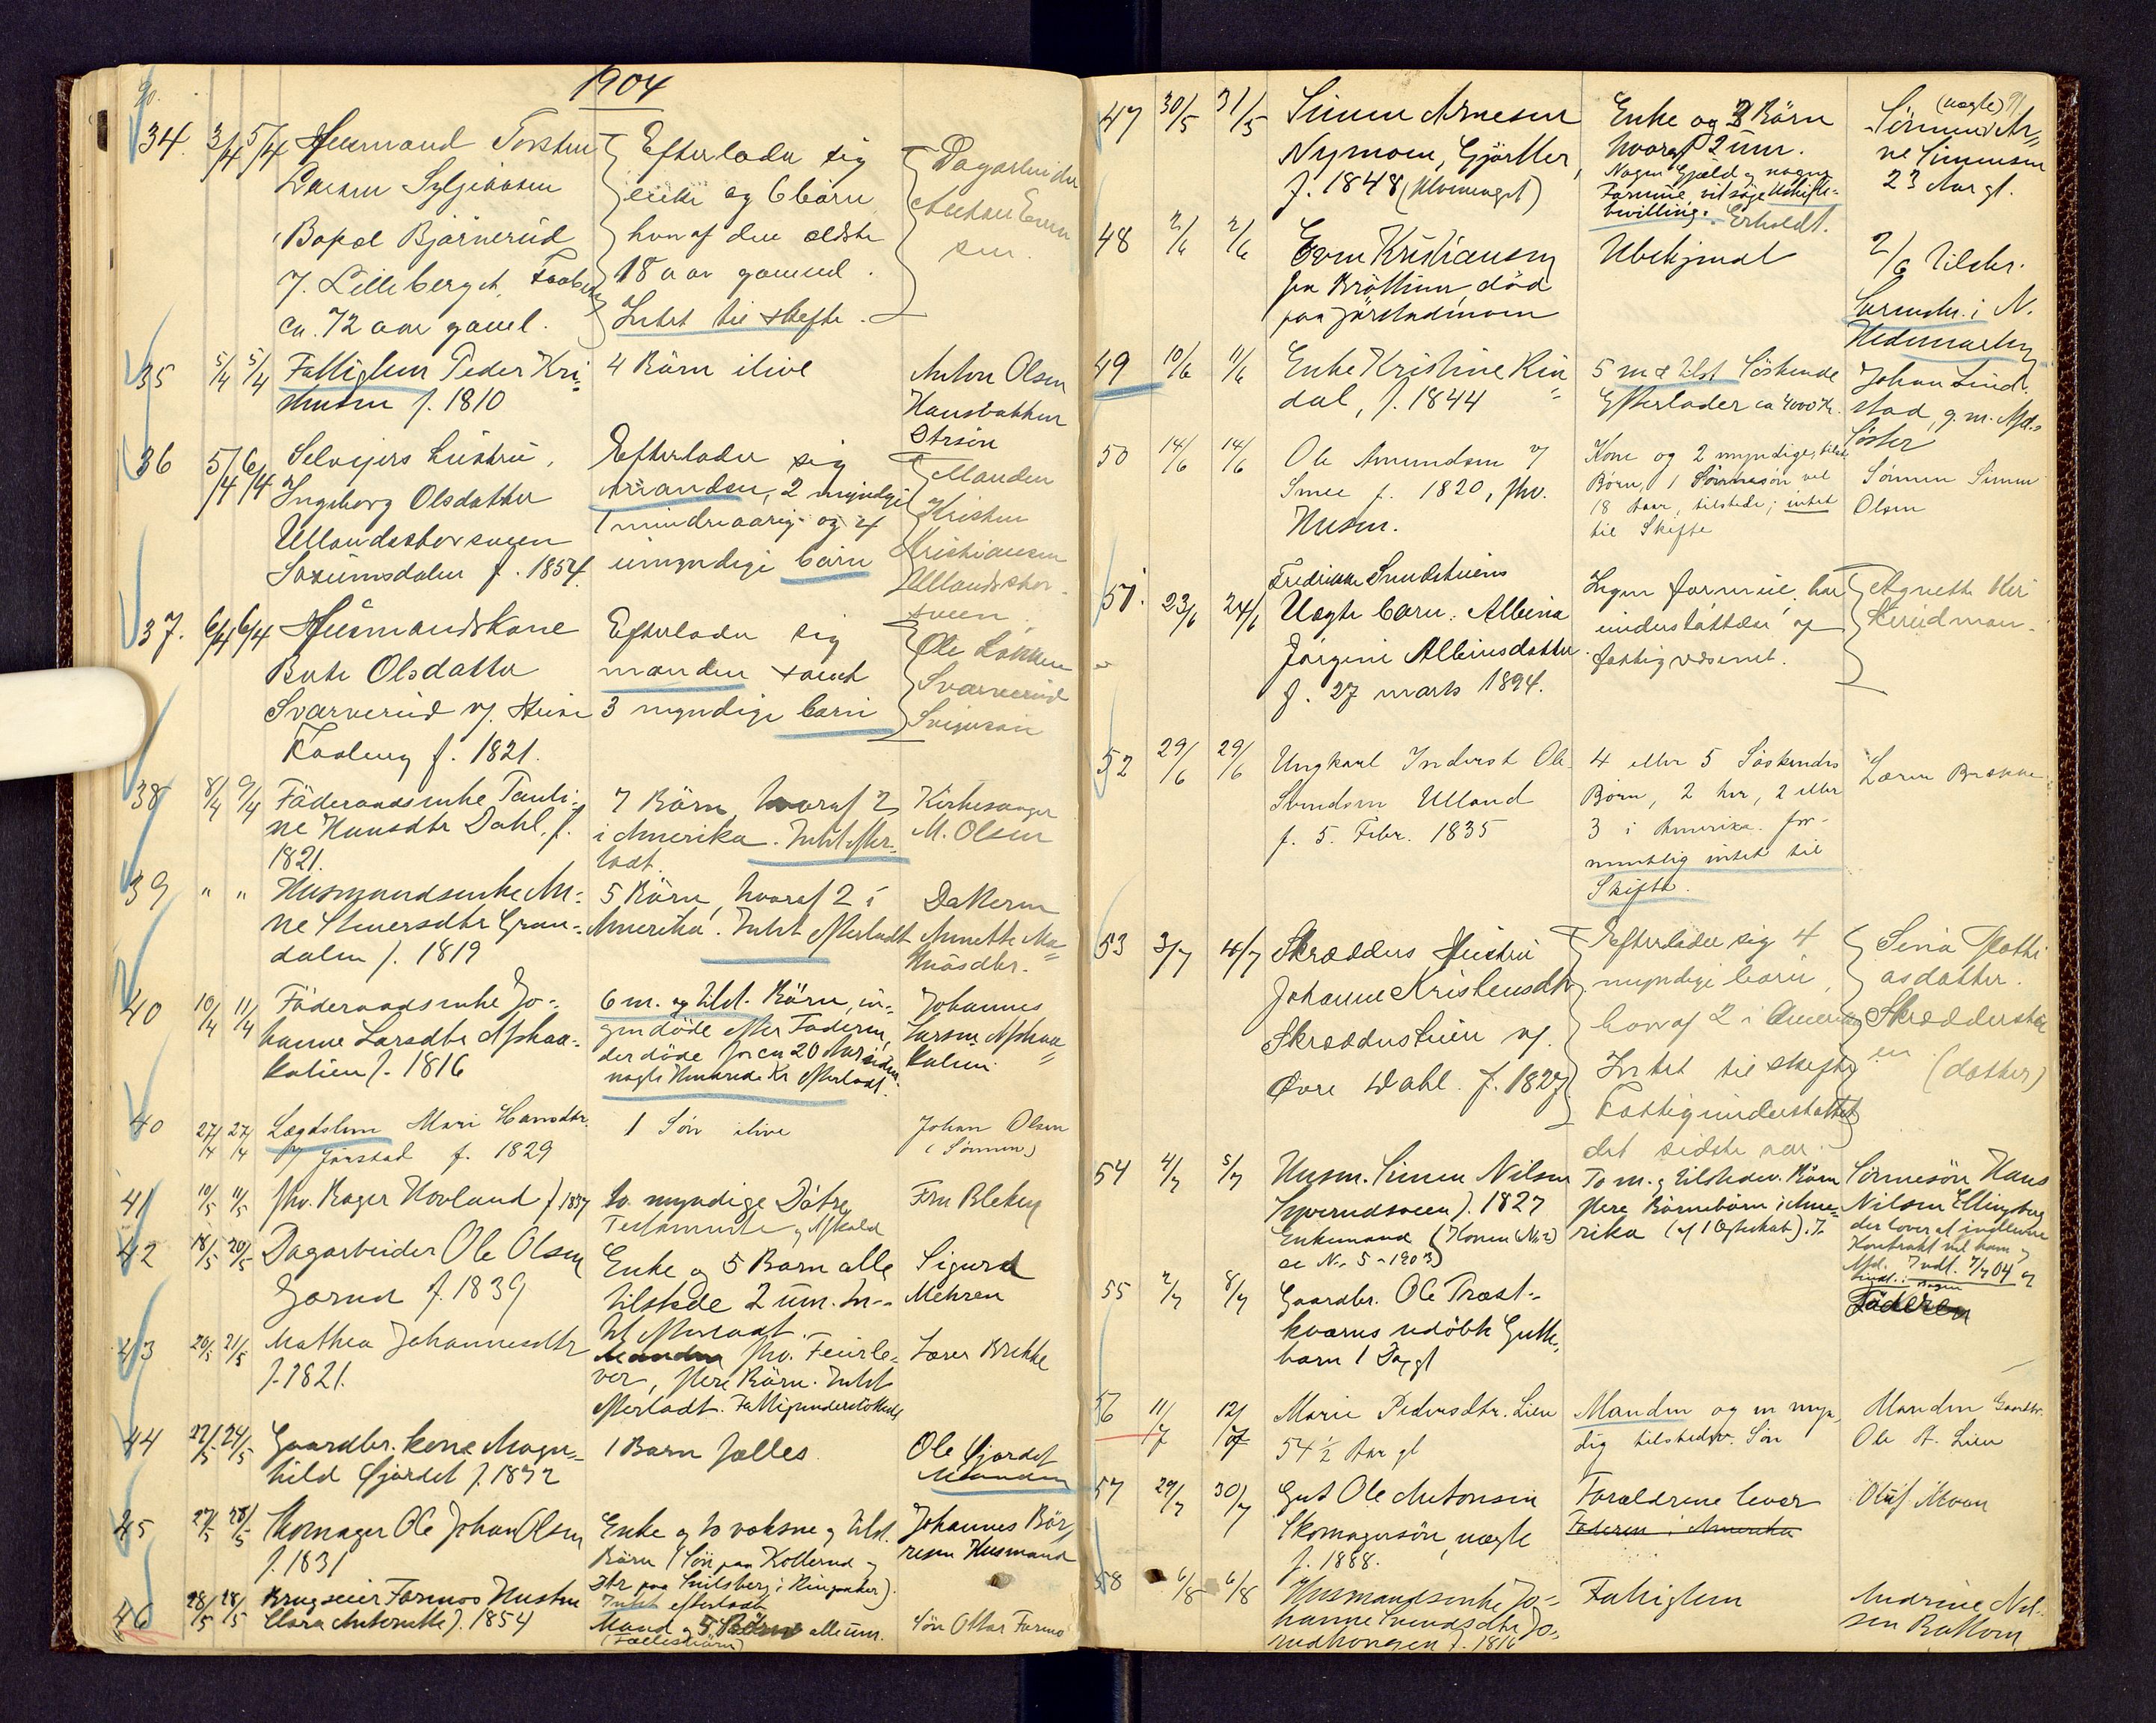 1904
34. 3/4 5/4 Husmand Torsten
Larsen Syljeaasen
Bopæl Bjørnerud
u/ Lilleberget, Faaberg
ca. 72 aar gamel.
Efterlader sig
enke og 6 børn
hvoraf den ældste
18 aar gammel.
Intet til skifte.
Dagarbeider
35 5/4 5/4 Fattiglem Peder Kri-
stensen f. 1810
4 Børn ilive
Anton Olsen
Hansbakken
36 5/4 6/4 Selveiers hustru,
Ingeborg Olsdatter
Ullandshorsveen
Saxumsdalen f. 1854.
Efterlader sig
manden, 2 myndige
1 mindreaarig og 4
umyndige børn
Manden
Kristen
Kristiansen
Ullandshor-
sveen.
37. 6/4 6/4 Husmandskone
Olsdatter
Svarverud u/
Faaberg f. 1821.
Efterlader sig
manden samt
3 myndige børn
Ole Løkken
Svarverud
38 8/4 9/4 Føderaadsenke Pauli-
ne Hansdtr Dahl, f.
1821.
7 Børn hvoraf 2
i Amerika. Intet efter-
ladt.
Kirkesanger
M. Olsen
39 " " Husmandsenke An-
ne Iversdtr Gran-
dalen f. 1819
5 Børn, hvoraf 2 i
Amerika. Intet efterladt
Datteren
Annette Ma-
40 10/4 11/4 Føderaadsenke Jo-
hanne Larsdtr Afskaa-
kalien f. 1816
6 m. og tilst. Børn, in-
gen døde efter Faderen,
der døde for ca 20 Aar siden.
nogle Hundrede Kr efterladt.
Johannes
Larsen Afskaa-
kalien
40 27/4 27/4 Lægdslem Mari Hansdtr.
u/ Jørstad f. 1829
1 Søn ilive
Johan Olsen
(Sønnen)
41 10/5 11/5 fhv. Kager Hovland f 1837
to myndige Døtre
Testamente og Afkald
Frn Bleken
42 18/5 20/5 Dagarbeider Ole Olsen
f. 1839
Enke og 5 Børn alle
tilstede 2 um. In-
tet efterladt.
Sigurd
Mehren
43 20/5 21/5 Mathea Johannesdtr
f. 1821.
Manden fhv.
ver, flere Børn. Intet
efterladt. Fattigunderstøttet
Lærer Brekke
44 22/5 24/5 Gaardbr. kone Magn-
hild Fjordet f. 1872
1 Barn fælles
Ole Fjordet
Manden
45 27/5 28/5 Skomager Ole Johan Olsen
f. 1831
Enke og to voksne og tilst.
Børn (Søn paa Kollerud og
Dtr paa i Ringsaker).
Intet efterladt
Johannes Bør-
resen Husmand
46 28/5 28/5 Brugseier Formos Hustru
Clara Antonette f. 1854
Mand og 5 Børn alle um.
(Fællesbørn)
Søn Ottar Formo
47 30/5 31/5 Simen Arnesen
Nymoen, Gjørtler,
f. 1848
Enke og 3 Børn
hvoraf 2 um.
Nogen Gjæld og nogen
Formue, vil søge Uskifte-
bevilling. Erholdt.
(uægte)
Sønnen Ar-
ne Simensen
23 Aar gl.
48 2/6 2/6 Even Kristiansen
fra Brøttum, død
paa Jørstadmoen
Ubekjendt
2/6 tilskr.
Sorenskr. i N.
Hedemarken
49 10/6 11/6 Enke Kristine Rin-
dal, f. 1844
5 m & tilst Søskende
Efterlader ca 4000 Kr.
Johan Lind-
stad, g. m. Afd.s
Søster
50 14/6 14/6 Ole Amundsen u/
Smee f. 1820, fhv.
Husm.
Kone og 2 myndige, tilst.
Børn, 1 Sønnesøn vel
18 Aar, tilstede; intet
til Skifte
Sønnen Simen
Olsen
51. 23/6 24/6 Fredrikke Smedstuens
Uægte barn: Albina
Jørgine Albinsdatter.
f. 27 marts 1894.
Ingen formue, har
understøttelse af
fattigvæsenet.
Agnethe
52 29/6 29/6 Ungkarl Inderst Ole
Svendsen Ulland
f. 5. Febr. 1835
4 eller 5 Søskendes
Børn, 2 her, 2 eller
3 i Amerika. for-
mentlig intet til
Skifte.
Lærer Brekke
53 3/7 4/7 Skræders Hustru
Johanne Kristensdtr
Skrædderstuen u/
Øvre Dahl. f. 1827
Efterlader sig 4
myndige børn,
hvoraf 2 i Amerika
Intet til skifte
Fattigunderstøttet
det sidste aar.
Sina Mathi
asdatter.
Skrædderstu
en (datter)
54 4/7 5/7 Husm. Simen Nilsen
f. 1827
Enkemand (Konen No
se No 5 - 1903)
To m. og tilstedev. Børn
flere Børnebørn i Ame-
rika
Sønnesøn Hans
Nilsen Ellingsberg
der lover at indlevere
Kontrakt ml ham og
Afd. Indl. 7/7 04
55 7/7 8/7 Gaardbr. Ole Trost-
kværns udøbte Gutte-
barn 1 Dag gl
56 11/7 12/7 Marie Pedersdtr. Lien
54 1/2 Aar gl
Manden og en myn-
dig tilstedev. Søn
Manden Gaardbr.
Ole A. Lien
57 29/7 30/7 Gut Ole Antonsen
Skomagersøn, uægte
f. 1888.
Forældrene lever
Faderen i Amerika
Oluf Moen
58 6/8 6/8 Husmandsenke Jo-
hanne Svendsdtr Jo-
f. 1816
Fattiglem
Andrine Nil-
sen